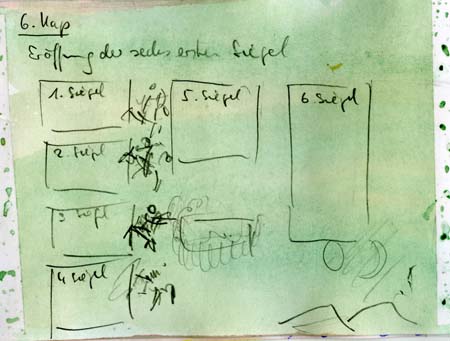 6. Kap
Eröffnung der sechs ersten Siegel
1. Siegel
2. Siegel
3 Siegel
4 Siegel
5. Siegel
6. Siegel